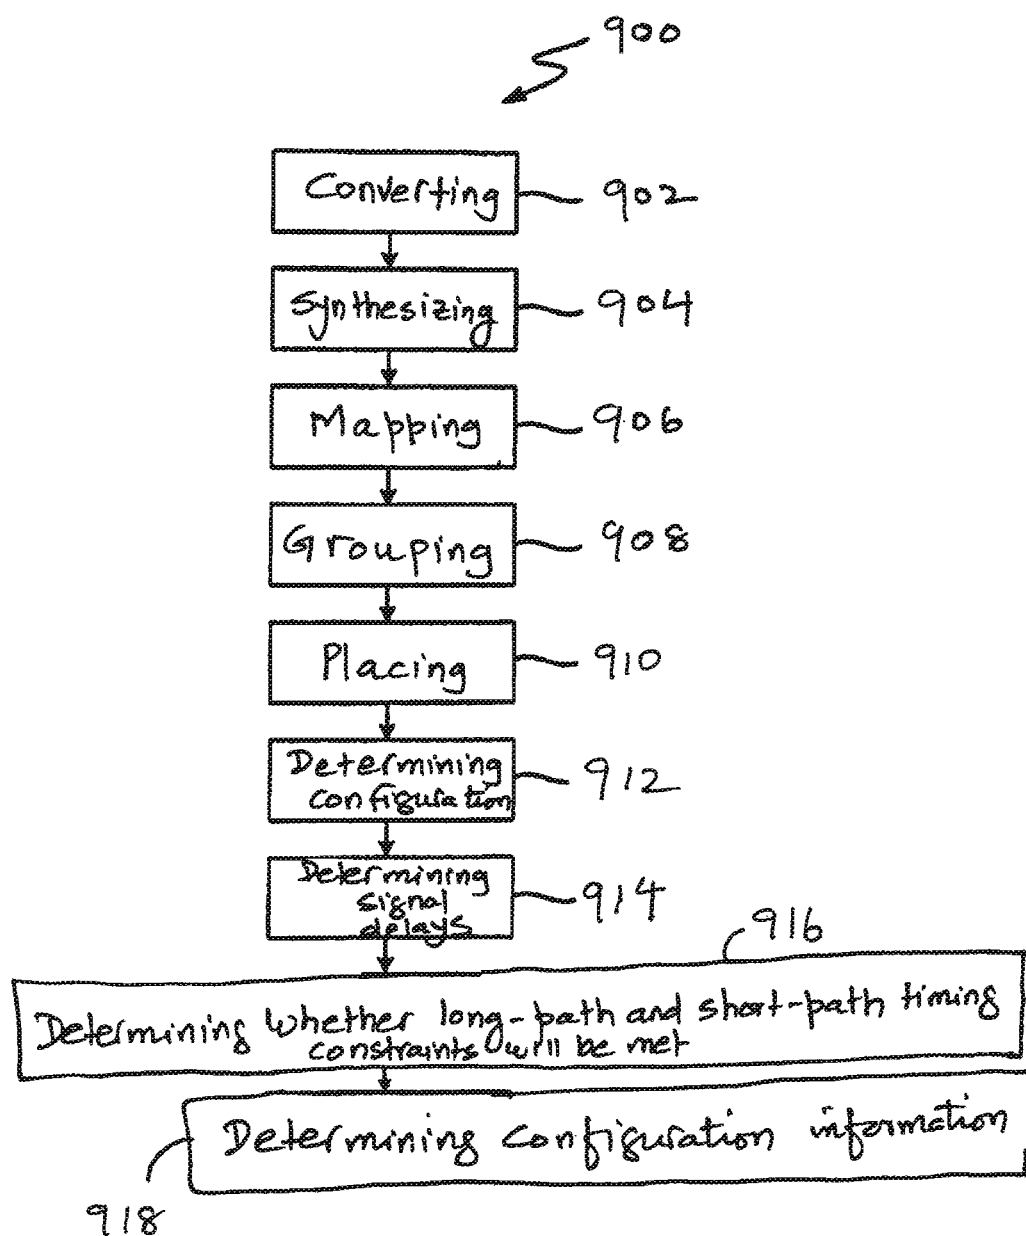 900
Converting
902
Synthesizing
904
Mapping
906
Grouping
908
Placing
910
Determining
configuration
912
Determining
signal
delays
914
916
Determining whether long-path and short-path timing
constraints will be met
Determining configuration information
918